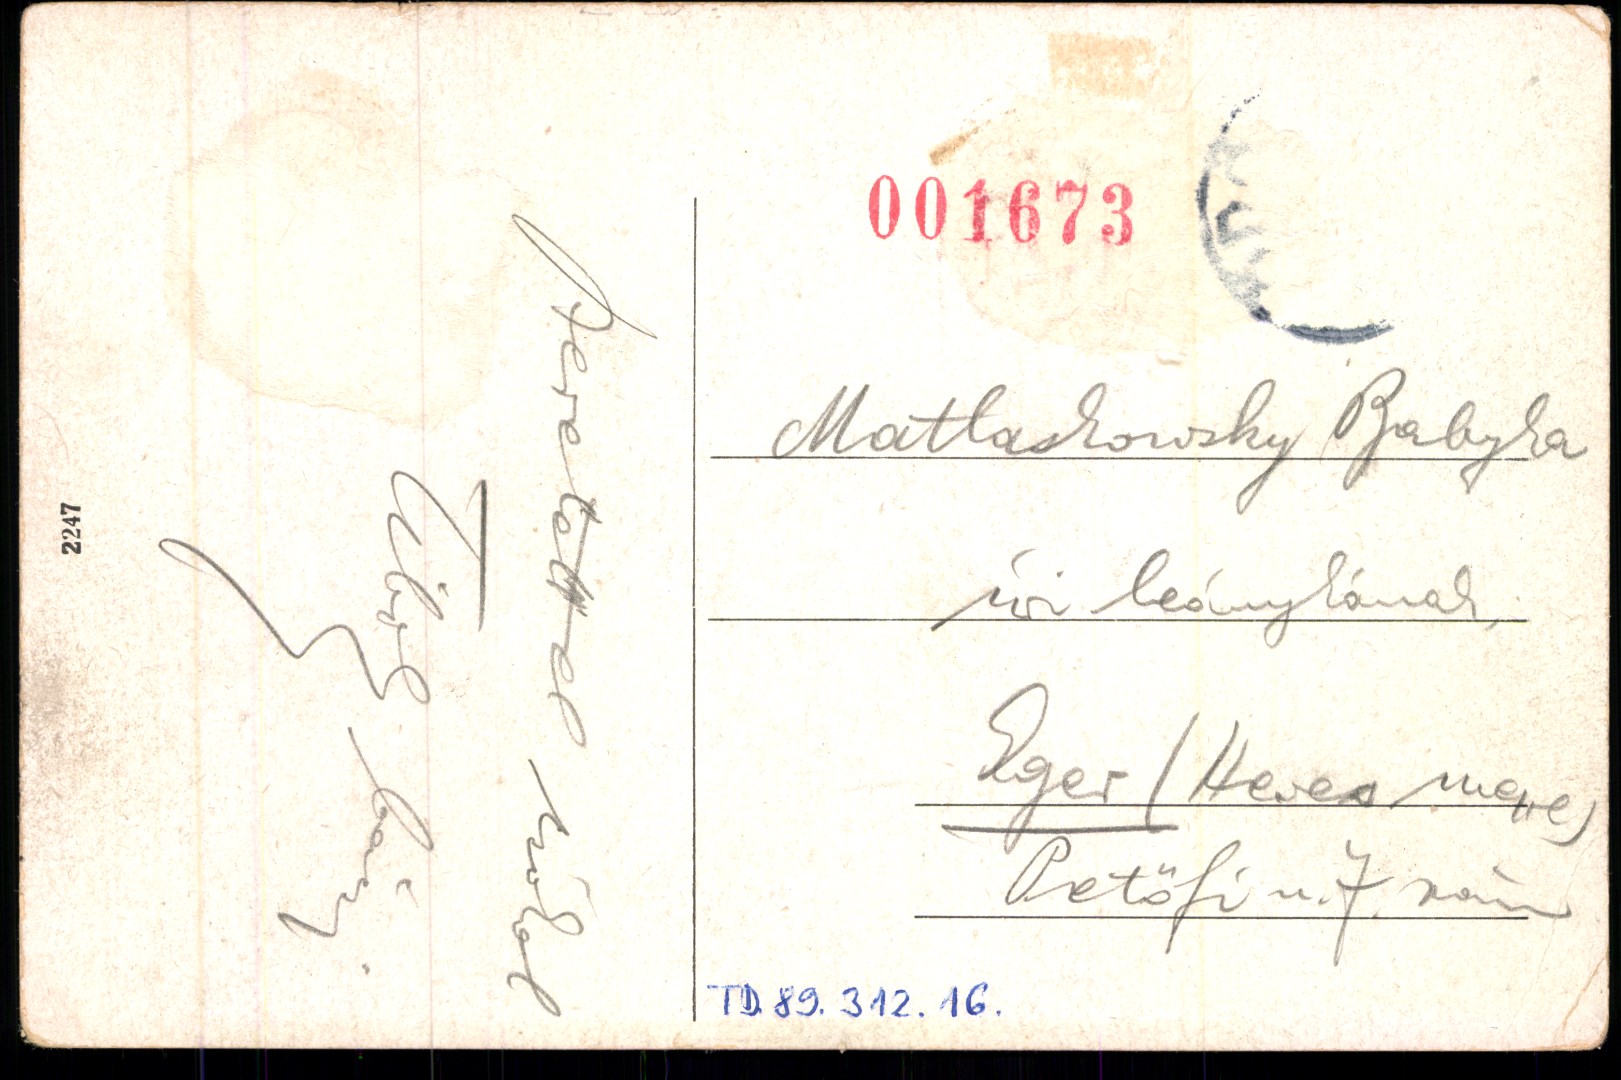 2247
Szeretettel csókol
Tibor bácsi.
001673
Matlaskowsky Babyka
úri leánykának,
Eger (Heves megye)
Petőfi u. 7. szám
TD. 89. 312. 16.